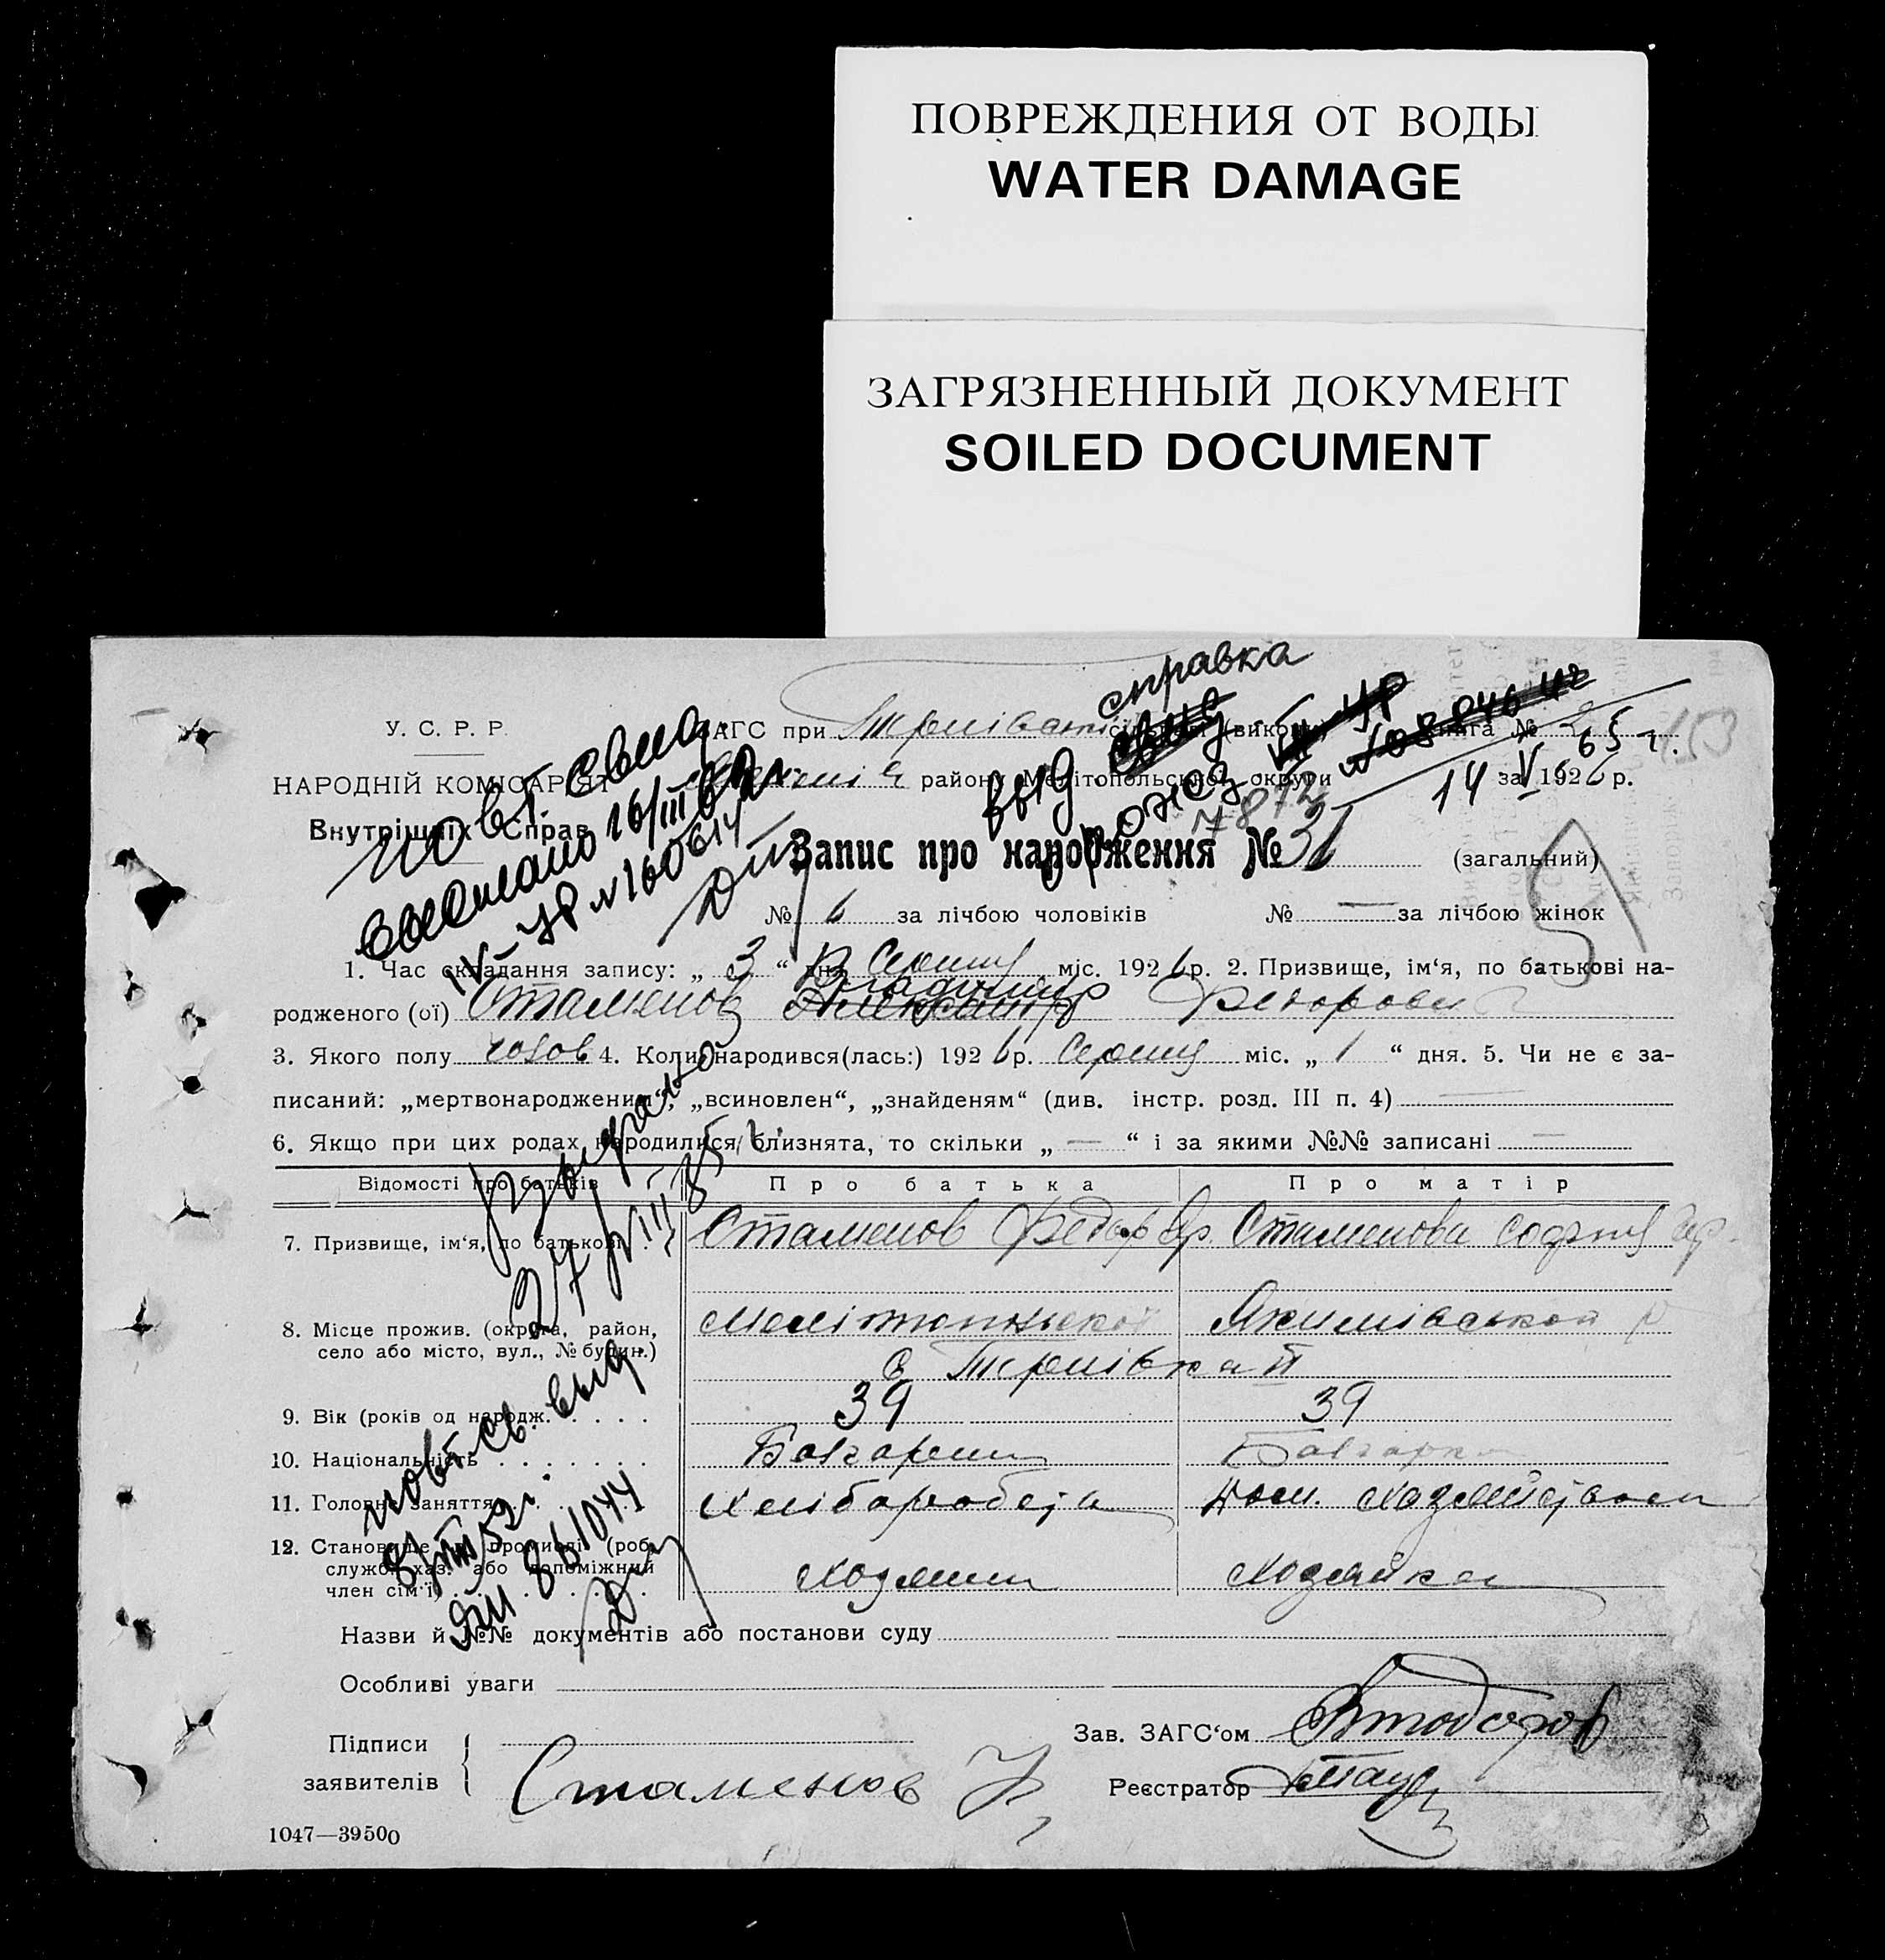 ПОВРЕЖДЕНИЯ ОТ ВОДЫ
WATER DAMAGE
ЗАГРЯЗНЕННЫЙ ДОКУМЕНТ
SOILED DOCUMENT
справка
У. С. Р. Р.
ЗАГС при
книга №
НАРОДНІЙ КОМІСАРІЯТ
району Мелітопольської округи
за 1926 р.
14 V 65 г.
Внутрішніх Справ
повт. свид.
выслано 16/III
IV-УР № 160614
выд.
Запис про народження № 31 (загальний)
№ 6 за лічбою чоловіків № — за лічбою жінок
1. Час складання запису: „ 3 “ дня Серпня міс. 1926 р. 2. Призвище, ім‘я, по батькові на-
Владимир
родженого (ої) Стаменов Александр Федорови
3. Якого полу чолов 4. Коли народився(лась:) 1926 р. Серпня міс. „ 1 “ дня. 5. Чи не є за-
писаний: „мертвонароджений“, „всиновлен“, „знайденям“ (див. інстр. розд. III п. 4) —
6. Якщо при цих родах народилися близнята, то скільки „ — “ і за якими №№ записані —
Выбрано
27/VIII 35 г.
Відомості про батьків Про батька Про матір
7. Призвище, ім‘я, по батькові Стаменов Федор Стаменова Софія
8. Місце прожив. (округа, район, Мелітопольскої Якимівськой р
село або місто, вул., № будин.) с Тернівка II
9. Вік (років од народж. 39 39
10. Національність Болгарин Болгарка
11. Головне заняття Хліборобств Дом. хозяйство
12. Становище в промислі (роб.
служб. хаз. або допоміжний Хозяин Хозяйка
член сім‘ї)
повт. св. выд.
8/VIII 52 г.
ЯШ 861044
Назви й №№ документів або постанови суду
Особливі уваги
Підписи
заявителів
Стаменов Ф
Зав. ЗАГС‘ом
Реєстратор
1047—39500